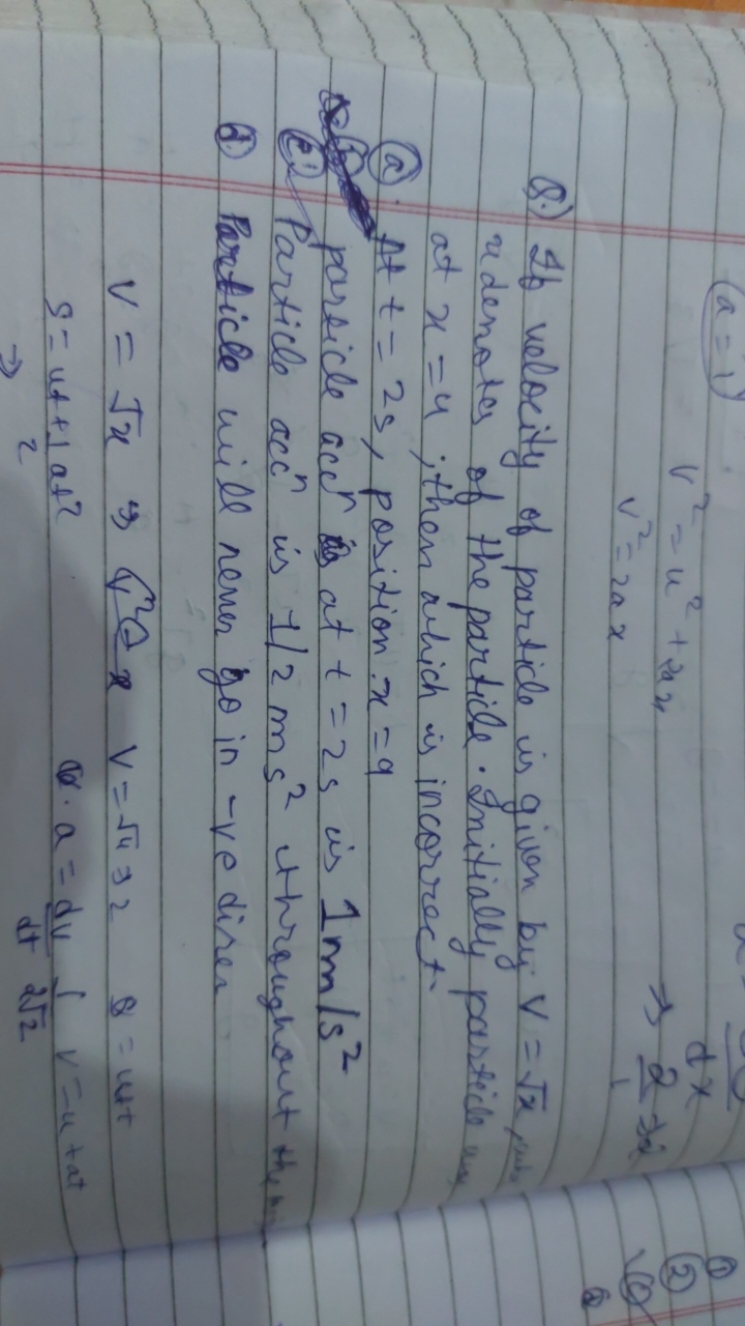 a = 1
v² = u² + 2ax
v² = 2ax
dx
⇒ 2
Q.) If velocity of particle is given by V = √x,
x denotes of the particle. Initially particle was
at x = 4, then which is incorrect
(a). At t = 2s, position x = 9
particle accⁿ is at t = 2s is 1m/s²
(c.) Particle accⁿ is 1/2 ms² throughout the
(d) Particle will never go in -ve direⁿ
V = √x ⇒ x V = √4 ⇒ 2 S = ut +
S = ut + 1 at² a = dv V = u + at
2 dt 2√2
⇒
①
②